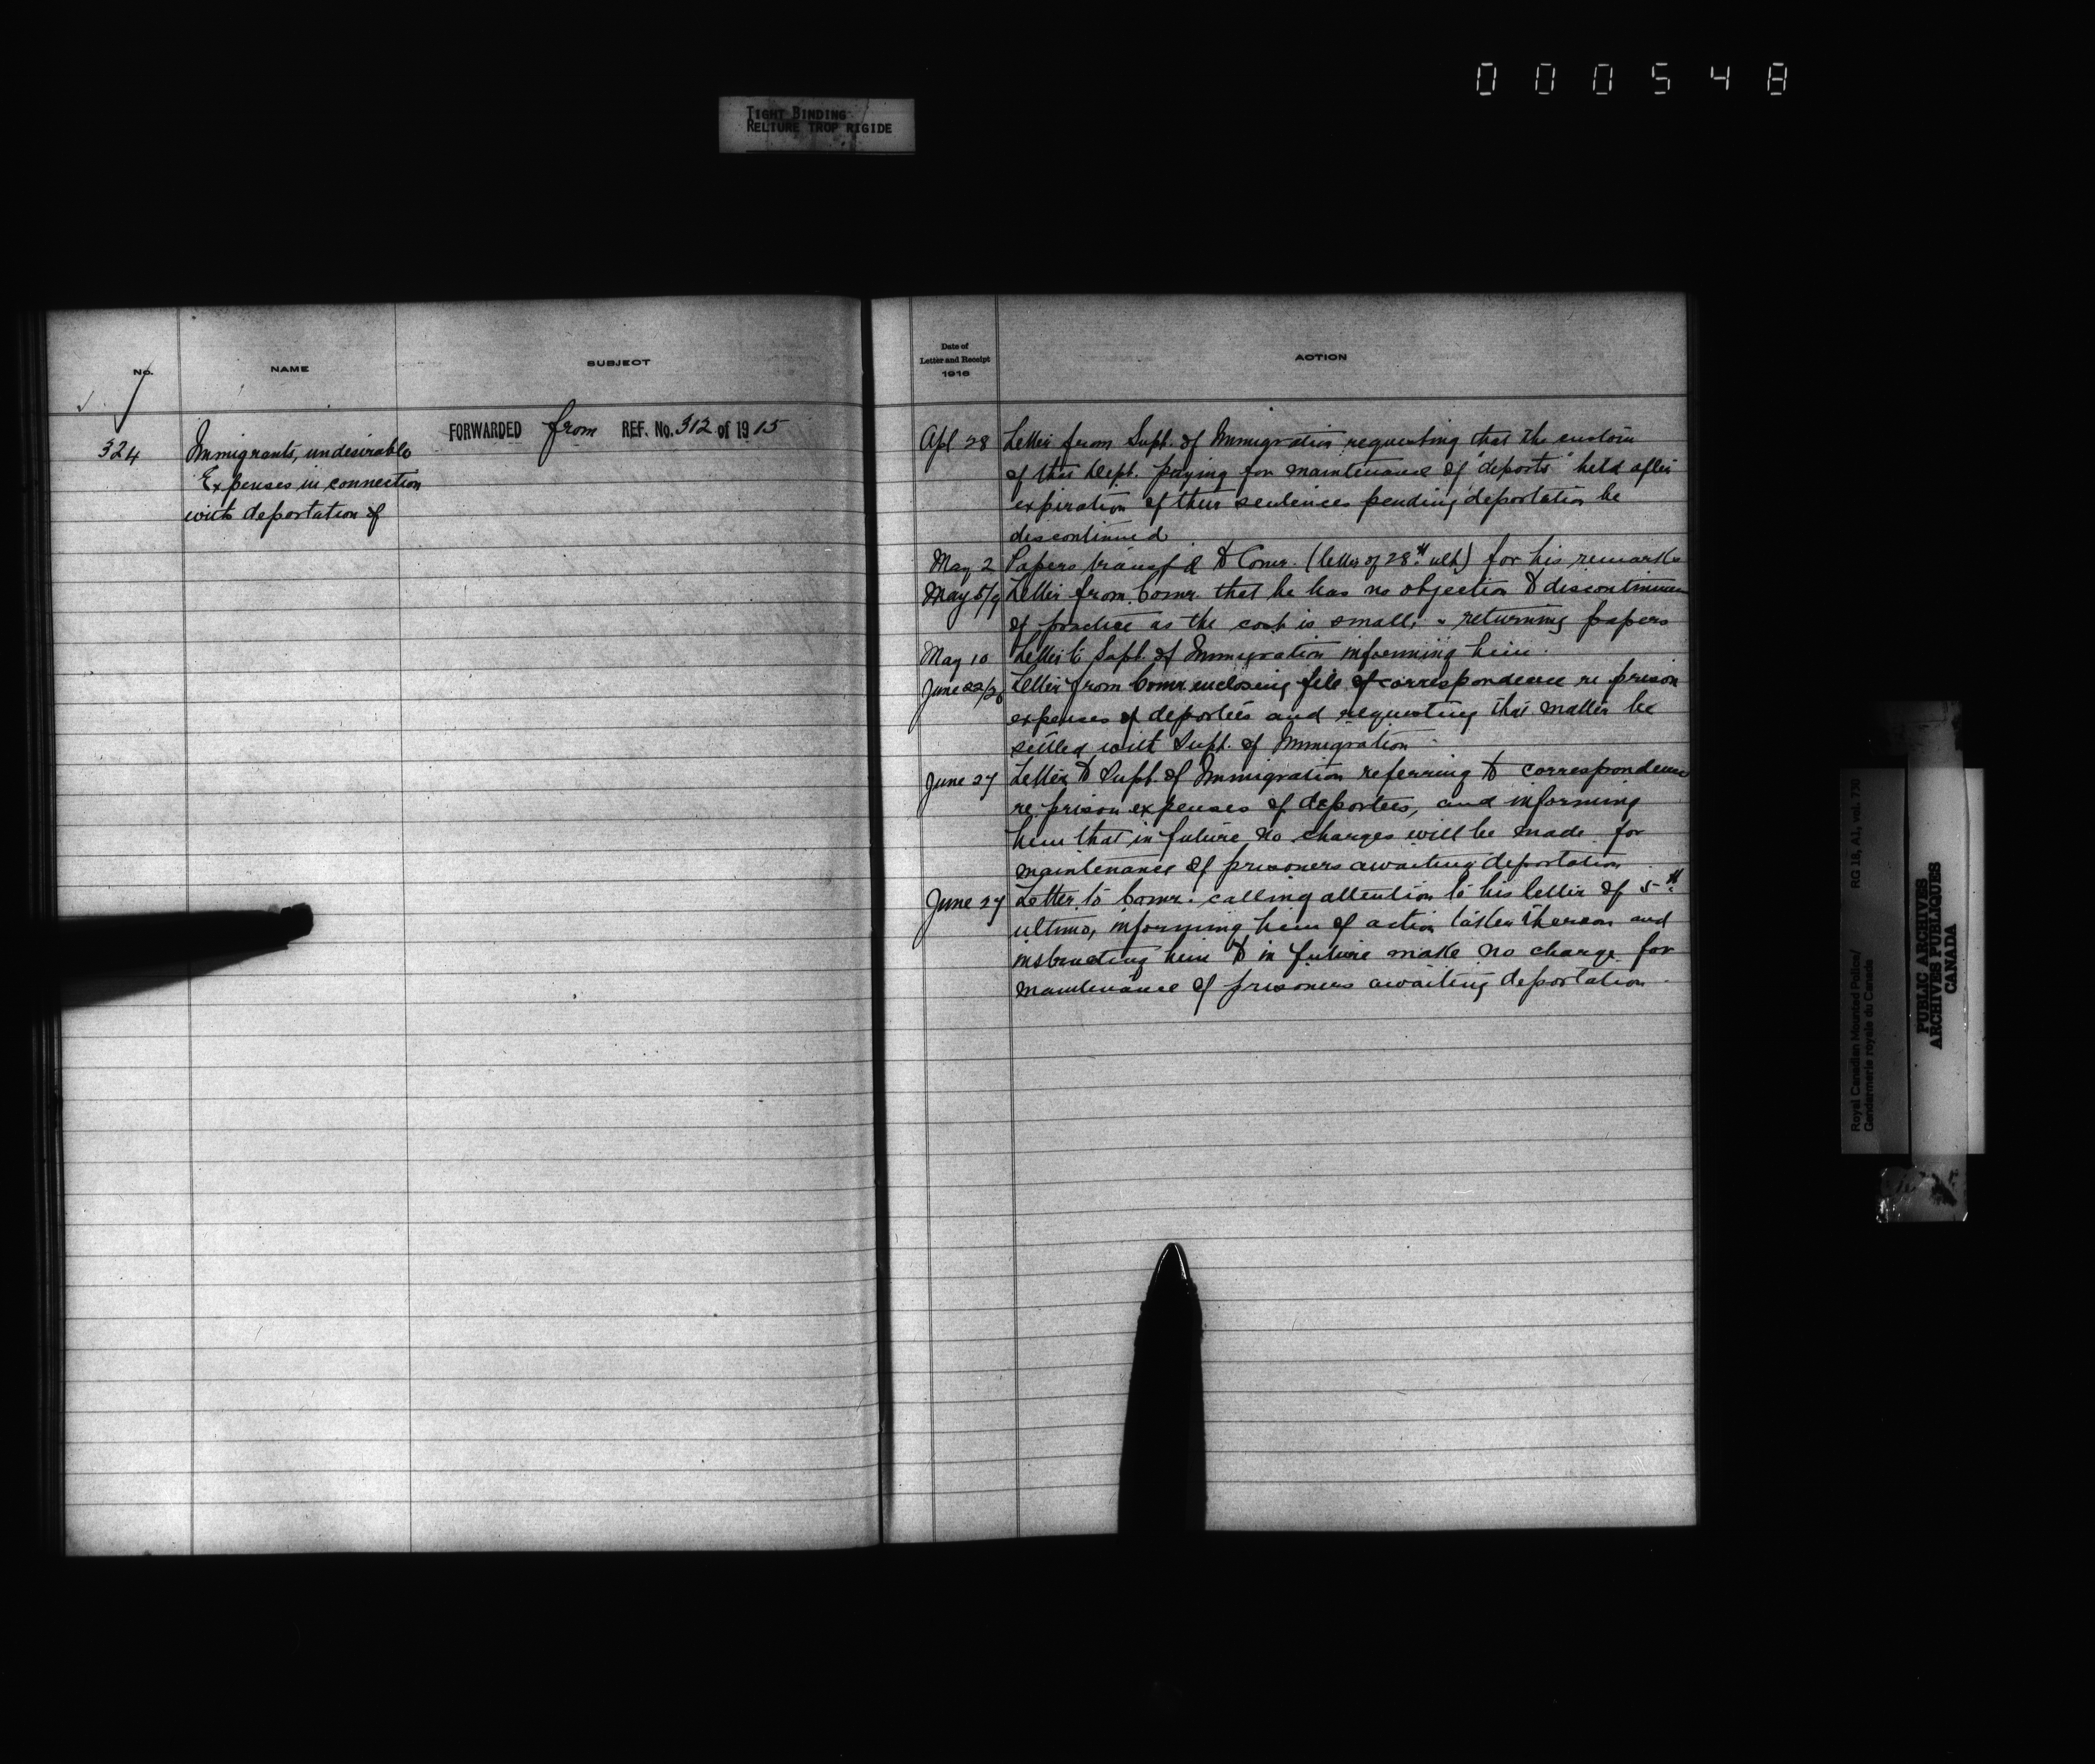 000548
TIGHT BINDING
RELIURE TROP RIGIDE
No.
NAME
SUBJECT
324
Immigrants, undesirable
Expenses in connection
with deportation of
FORWARDED from REF. No. 312 of 1915
Date of
Letter and Receipt
1916
ACTION
Apl 28 Letter from Supt. of Immigration requesting that the custom
of this Dept. paying for maintenance of "deports" held after
expiration of their sentences pending deportation be
discontinued
May 2 Papers transf'd to Comr. (letter of 28th ult) for his remarks
May 5/9 Letter from Comr. that he has no objection to discontinuance
of practice as the cost is small, & returning papers
May 10 Letter to Supt. of Immigration informing him.
June 22/26 Letter from Comr. enclosing file of correspondence re prison
expenses of deportees and requesting that matter be
settled with Supt. of Immigration
June 27 Letter to Supt. of Immigration referring to correspondence
re prison expenses of deportees, and informing
him that in future no charges will be made for
maintenance of prisoners awaiting deportation
June 27 Letter to Comr. calling attention to his letter of 5th
ultimo, informing him of action taken thereon and
instructing him to in future make no charge for
maintenance of prisoners awaiting deportation.
Royal Canadian Mounted Police/
Gendarmerie royale du Canada
RG 18, A1, vol. 730
PUBLIC ARCHIVES
ARCHIVES PUBLIQUES
CANADA